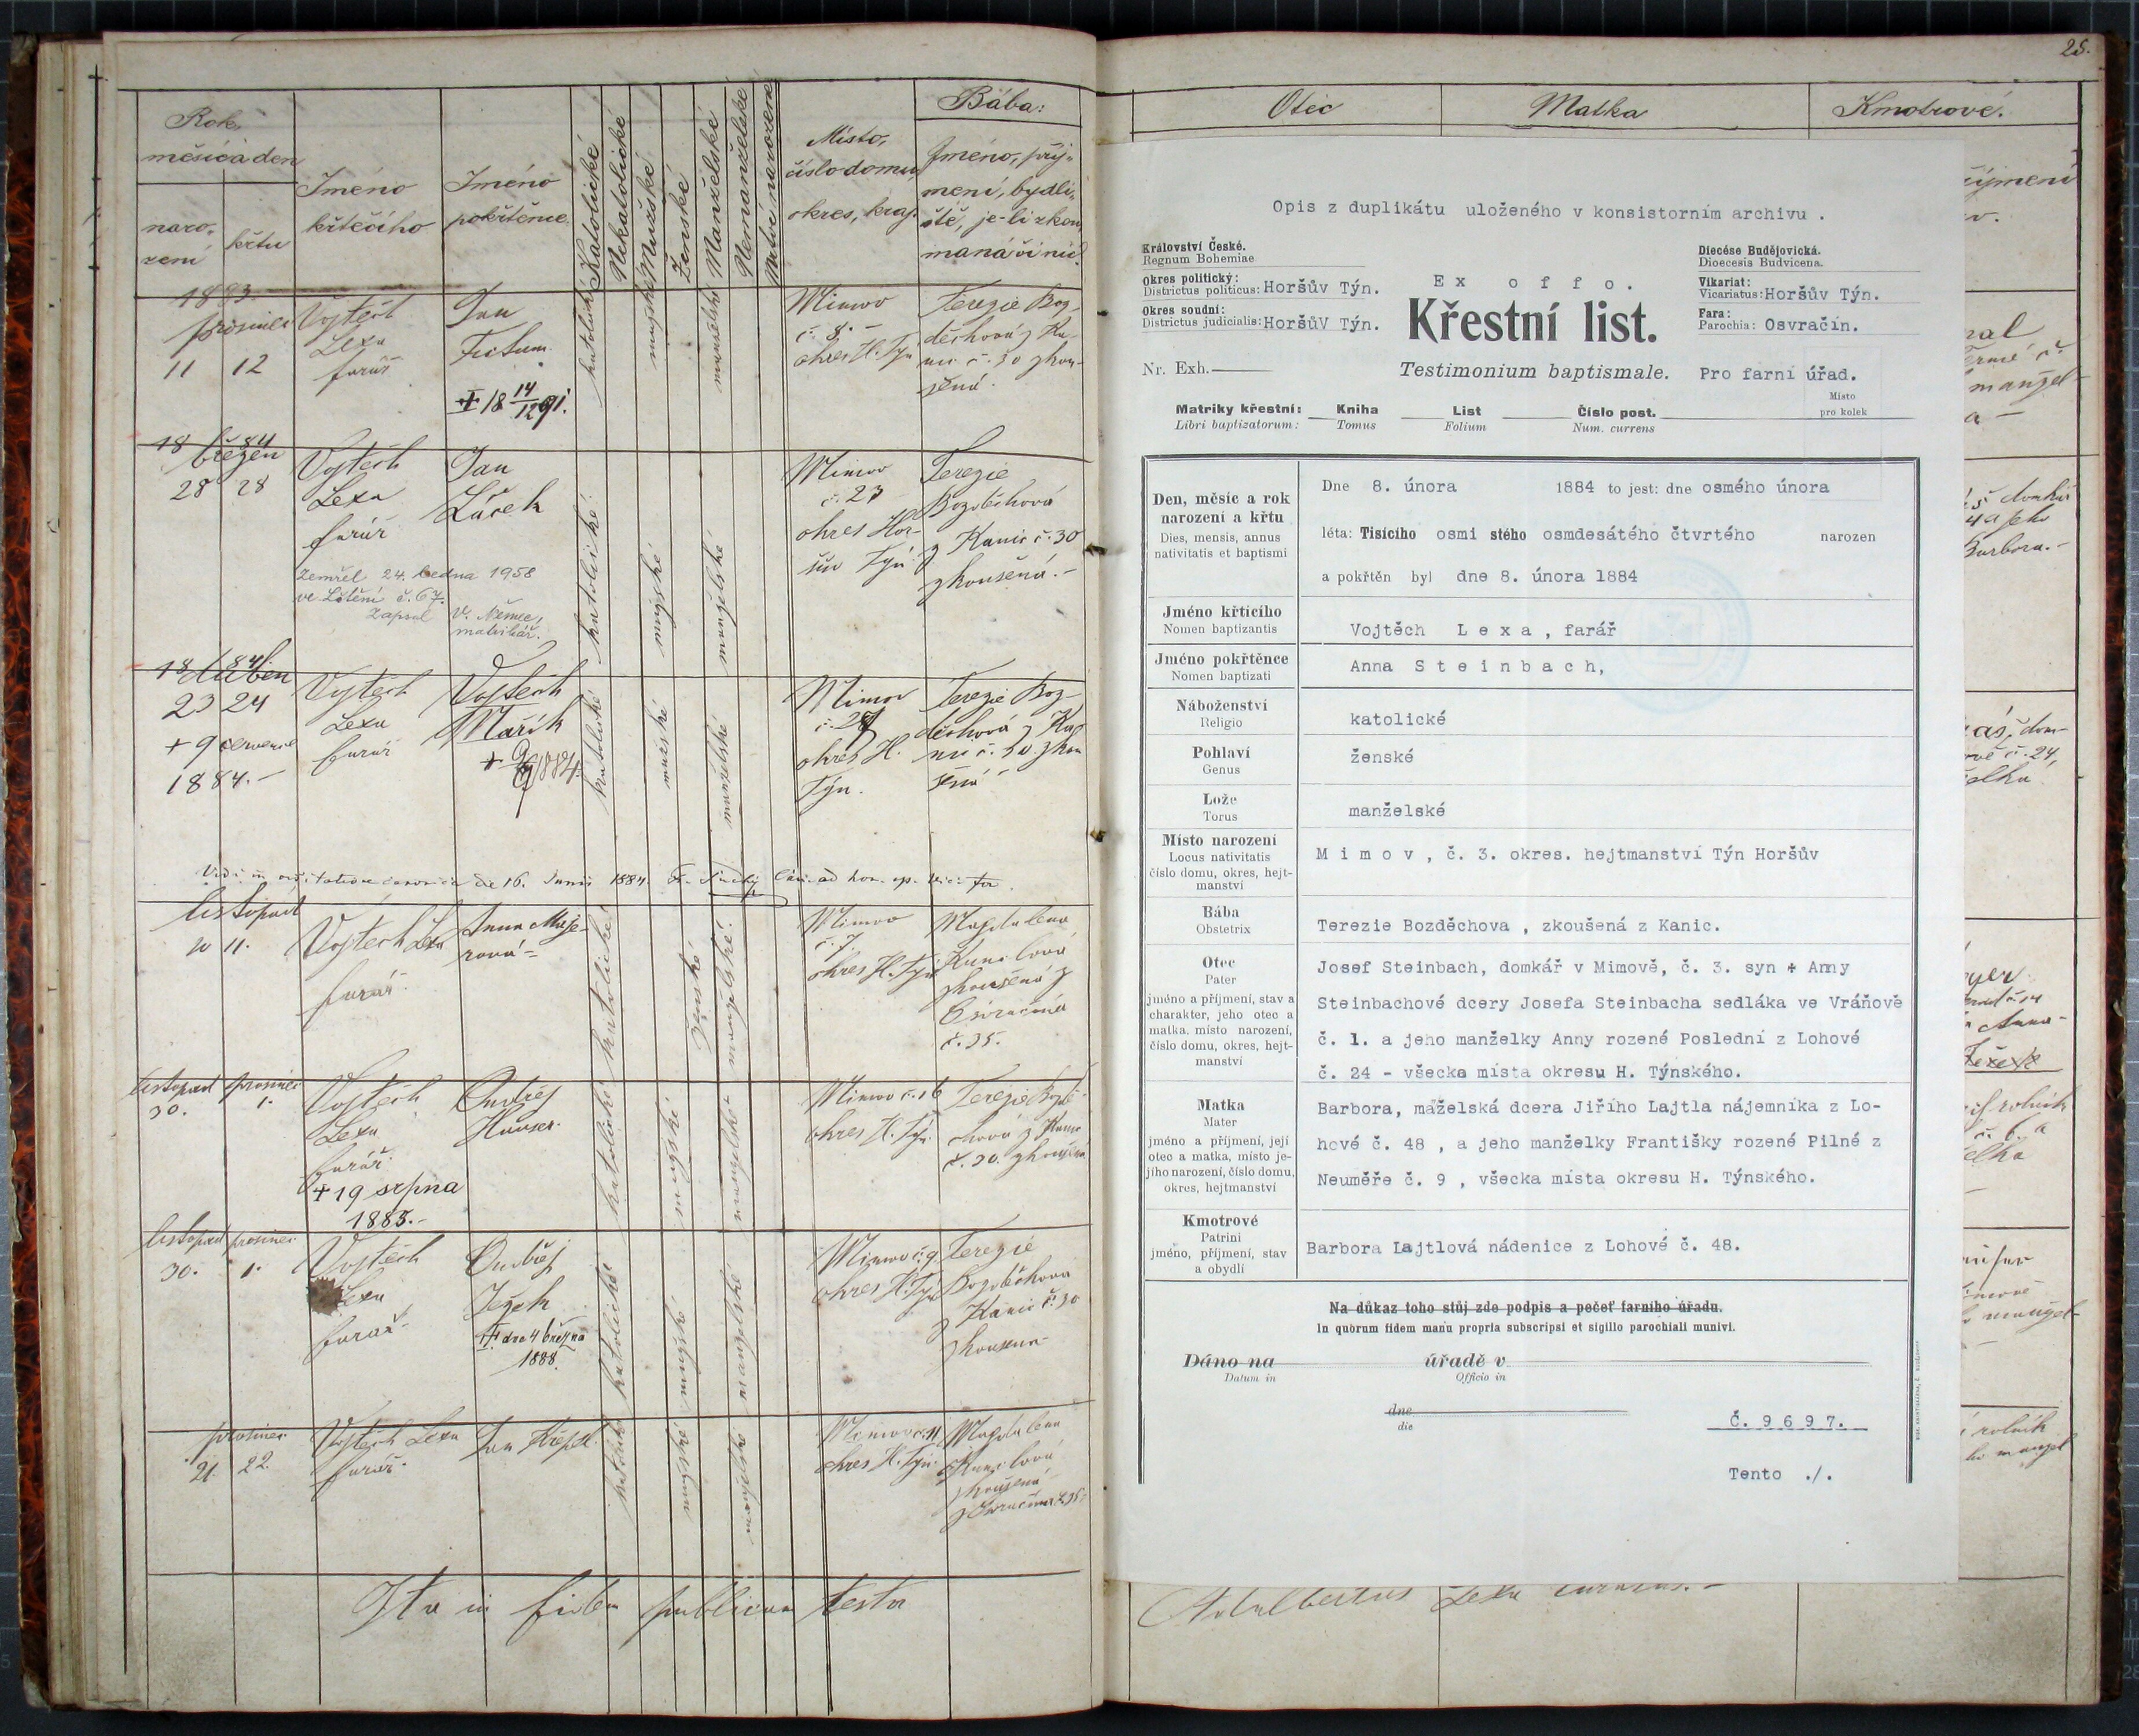 25.
Rok,
měsíc a den
naro-
zení
křtu
Jméno
křtícího
Jméno
pokřtěnce
Katolické
Nekatolické
Mužské
Ženské
Manželské
Nemanželské
Mrtvě narozené
Místo,
číslo domu,
okres, kraj.
Bába:
Jméno, příj-
mení, bydli-
ště, je-li zkou-
maná či nic?
1883
prosinec
11 12
Vojtěch
Lexa
farář
Jan
18 14/12 91.
katolické
mužské
manželské
Mimov
č. 8. -
okres H. Týn
Terezie Boz-
děchová z Ka-
nic č. 30 zkou-
šená.
1884
březen
28 28
Vojtěch
Lexa
farář
Jan
zemřel 24. ledna 1958
č. 67.
Zapsal V. Němec,
matrikář.
katolické
mužské
manželské
Mimov
č. 23
okres Hor-
šův Týn
Terezie
Bozděchová
z Kanic č. 30
zkoušená. -
1884
duben
23 24
+ 9 července
1884. -
Vojtěch
Lexa
farář
Vojtěch
Mařík
katolické
mužské
manželské
Mimov
okres H.
Týn.
Terezie Boz-
děchová z Ka-
nic č. 30. zkou
šená
Vidi in visitatione canonica die 16. Junii 1884.
listopad
10 11.
Vojtěch Lexa
farář.
Anna Maje-
rová -
katolické
ženské
manželské
Mimov
č. 7.
okres H. Týn
Magdalena
zkoušená z
č. 35.
listopad prosinec
30. 1.
Vojtěch
Lexa
farář.
+ 19 srpna
1885. -
Ondřej
katolické
mužské
manželské
Mimov č. 16
okres H. Týn.
Terezie Bozdě-
chová z Kanic
č. 30. zkoušená
listopad prosinec
30. 1.
Vojtěch
Lexa
farář
Ondřej
Ježek
† dne 4 března
1888.
katolické
mužské
manželské
Mimov č. 9.
okres H. Týn
Terezie
Bozděchova
z Kanic č. 30
zkoušena
prosinec
21. 22.
Vojtěch Lexa
farář.
Jan
katolické
mužské
manželské
Mimov č. 11
okres H. Týn.
Magdalena
zkoušená
Ita in fidem publicam testor
Otec
Matka
Kmotrové.
Opis z duplikátu uloženého v konsistorním archivu .
Království České.
Regnum Bohemiae
Okres politický:
Districtus politicus: Horšův Týn.
Okres soudní:
Districtus judicialis: HoršůV Týn.
Nr. Exh.
Ex offo.
Křestní list.
Testimonium baptismale.
Diecése Budějovická.
Dioecesis Budvicena.
Vikariat:
Vicariatus: Horšův Týn.
Fara:
Parochia: Osvračín.
Pro farní úřad.
Místo
pro kolek
Matriky křestní: Kniha List Číslo post.
Libri baptizatorum: Tomus Folium Num. currens
Den, měsíc a rok
narození a křtu
Dies, mensis, annus
nativitatis et baptismi
Dne 8. února 1884 to jest: dne osmého února
léta: Tisícího osmi stého osmdesátého čtvrtého narozen
a pokřtěn byl dne 8. února 1884
Jméno křtícího
Nomen baptizantis
Vojtěch Lexa, farář
Jméno pokřtěnce
Nomen baptizati
Anna Steinbach,
Náboženství
Religio
katolické
Pohlaví
Genus
ženské
Lože
Torus
manželské
Místo narození
Locus nativitatis
číslo domu, okres, hejt-
manství
Mimov, č. 3. okres. hejtmanství Týn Horšův
Bába
Obstetrix
Terezie Bozděchova , zkoušená z Kanic.
Otec
Pater
jméno a příjmení, stav a
charakter, jeho otec a
matka, místo narození,
číslo domu, okres, hejt-
manství
Josef Steinbach, domkář v Mimově, č. 3. syn + Anny
Steinbachové dcery Josefa Steinbacha sedláka ve Vráňově
č. 1. a jeho manželky Anny rozené Poslední z Lohové
č. 24 - všecka místa okresu H. Týnského.
Matka
Mater
jméno a příjmení, její
otec a matka, místo je-
jího narození, číslo domu,
okres, hejtmanství
Barbora, mäželská dcera Jiřího Lajtla nájemníka z Lo-
hové č. 48 , a jeho manželky Františky rozené Pilné z
Neuměře č. 9 , všecka místa okresu H. Týnského.
Kmotrové
Patrini
jméno, příjmení, stav
a obydlí
Barbora Lajtlová nádenice z Lohové č. 48.
Na důkaz toho stůj zde podpis a pečeť farního úřadu.
In quorum fidem manu propria subscripsi et sigillo parochiali munivi.
Dáno na úřadě v
Datum in Officio in
dne
die
Č. 9697.
Tento ./.
Adalbertus Lexa curatus. -